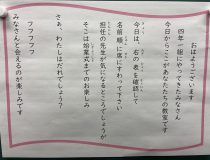 おはようございます
四年一組にやってきたみなさん
今日からここがあなたたちの教室です
今日は、右の表を確認して
名前順に席にすわって下さい
担任の先生が気になるところでしょうが
そこは始業式までのお楽しみ
さあ、わたしはだれでしょう？
フフフフフ
みなさんと会えるのが楽しみです